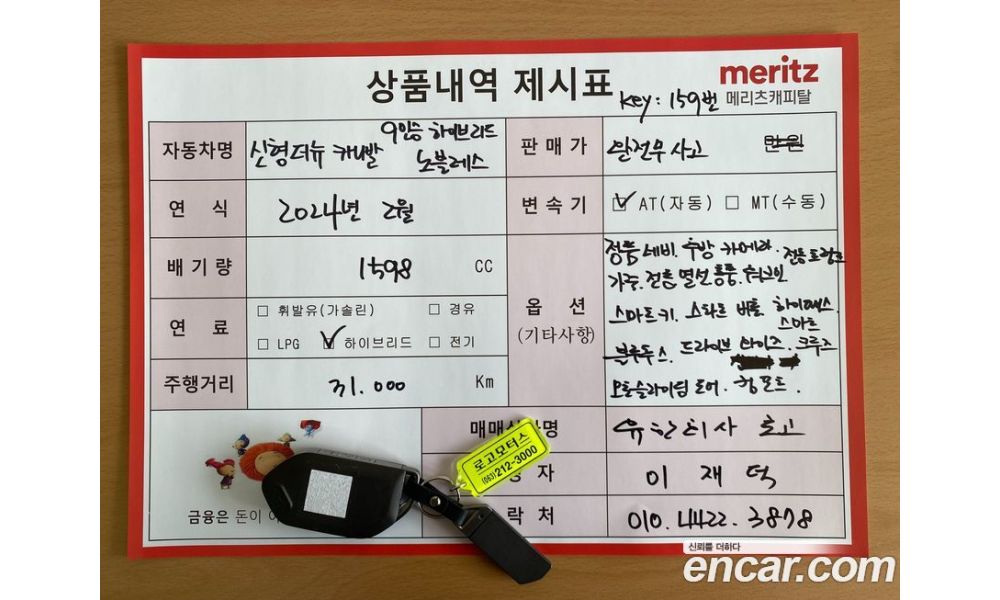 상품내역 제시표
meritz
메리츠캐피탈
key: 159번
자동차명
신형더뉴 카니발
9인승 하이브리드
노블레스
판매가
완전무사고
만원
연 식
2024년 2월
변속기
AT(자동) MT(수동)
배기량
1598 CC
옵 션
(기타사항)
정품 네비. 후방 카메라. 전동 트렁크
가죽. 전동 열선 통풍.
스마트키. 스타트 버튼. 하이패스.
스마트
블루투스. 드라이브 와이즈. 크루즈
오토슬라이딩 도어.
연 료
휘발유(가솔린) 경유
LPG 하이브리드 전기
주행거리
31.000 Km
유한회사 로고
이 재 덕
락 처
010.4422.3878
로고모터스
(063)212-3000
금융은 돈이
신뢰를 더하다
encar.com